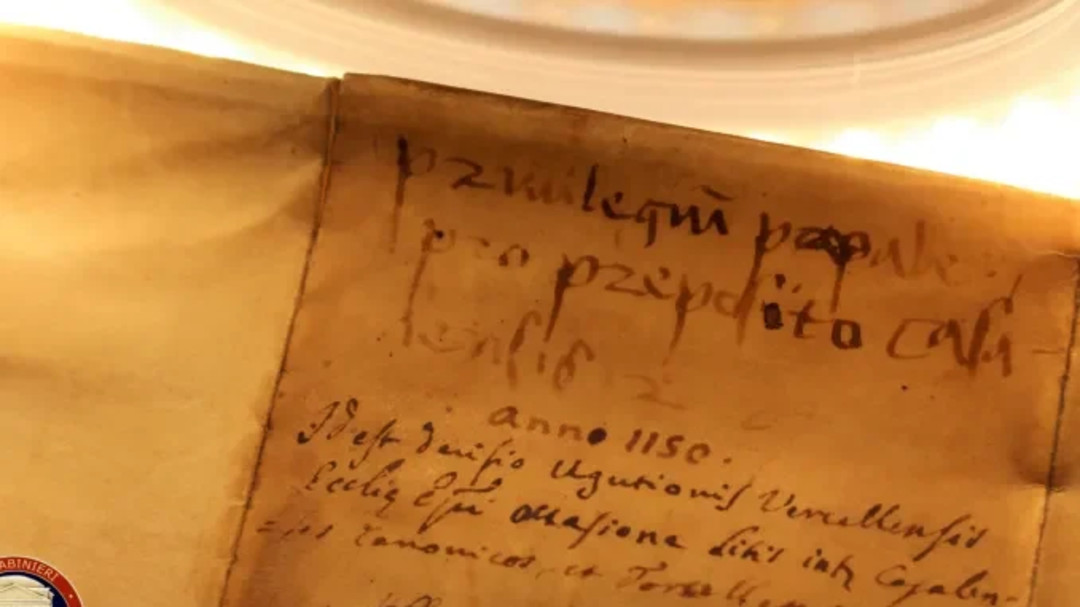 privilegiũ papale
pro prepoſito Caſa
lenſis
anno 1150.
Id est deciſio Ugutionis Vercellensis
Eccliæ Epi occaſione litis inter Caſalen=
=ses Canonicos, et
ABINIERI